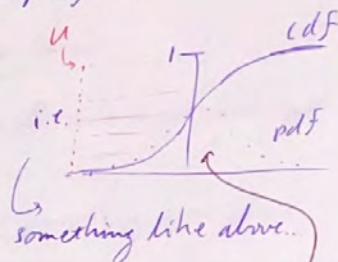 u
cdf
1
i.e.
pdf
something like above..